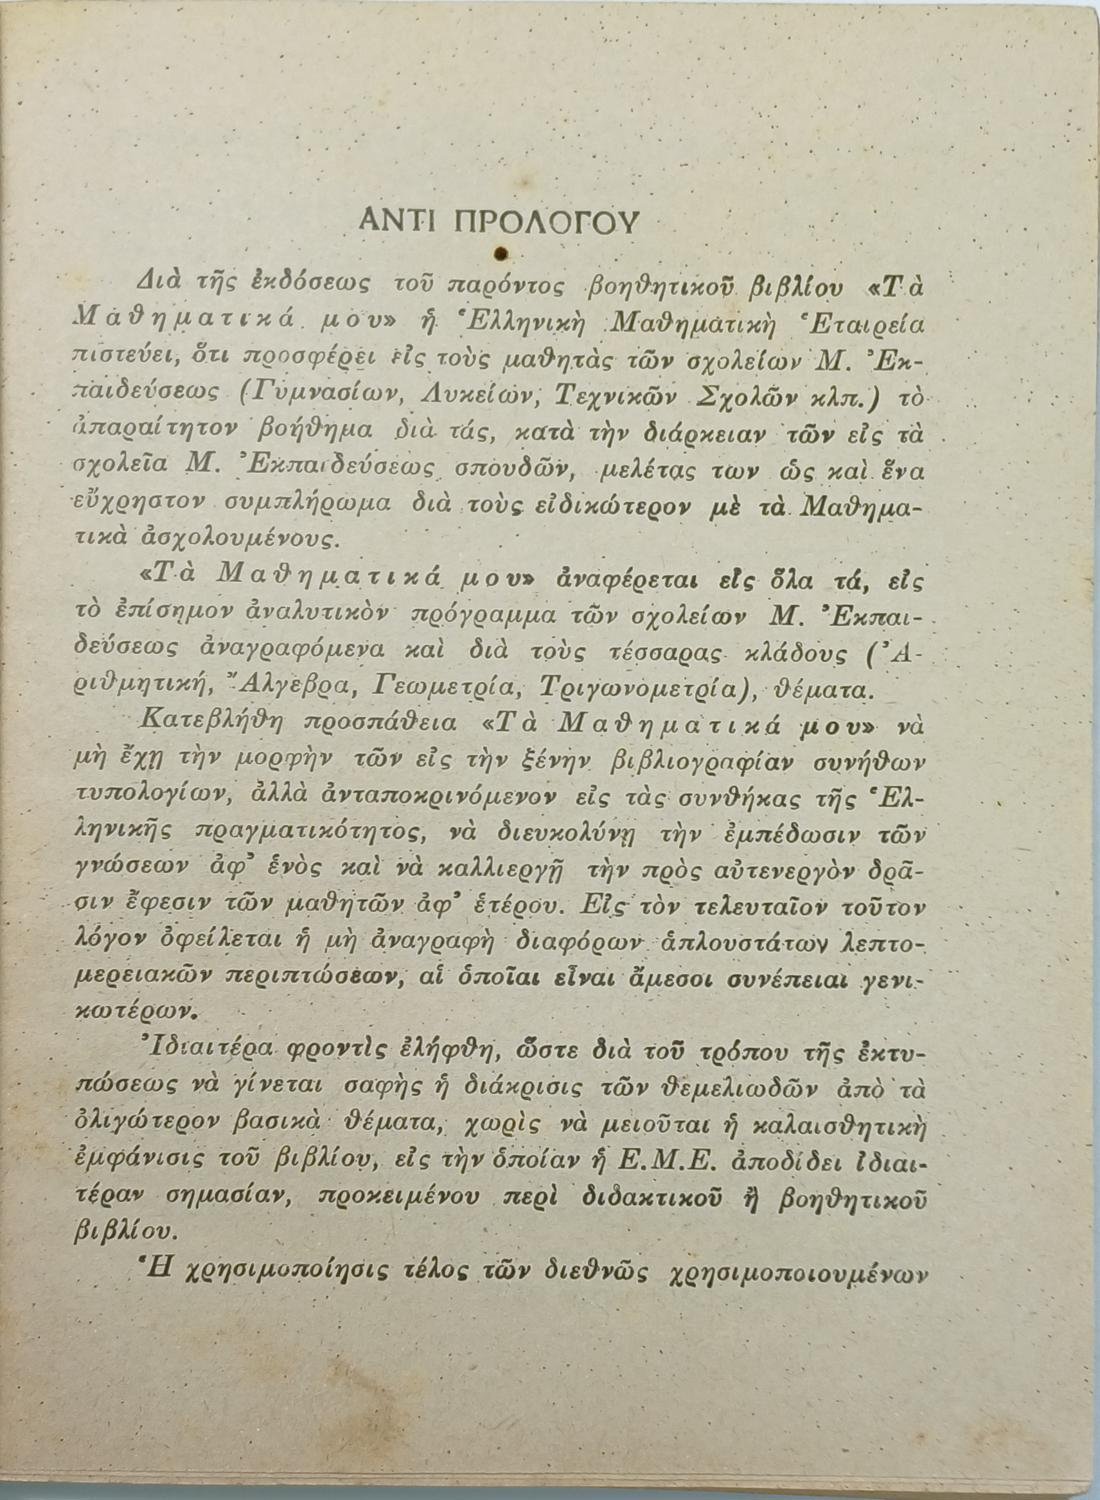 ΑΝΤΙ ΠΡΟΛΟΓΟΥ
Διὰ τῆς ἐκδόσεως τοῦ παρόντος βοηθητικοῦ βιβλίου «Τὰ
Μαθηματικά μου» ἡ Ἑλληνικὴ Μαθηματικὴ Ἑταιρεία
πιστεύει, ὅτι προσφέρει εἰς τοὺς μαθητὰς τῶν σχολείων Μ. Ἐκ-
παιδεύσεως (Γυμνασίων, Λυκείων, Τεχνικῶν Σχολῶν κλπ.) τὸ
ἀπαραίτητον βοήθημα διὰ τάς, κατὰ τὴν διάρκειαν τῶν εἰς τὰ
σχολεῖα Μ. Ἐκπαιδεύσεως σπουδῶν, μελέτας των ὡς καὶ ἕνα
εὔχρηστον συμπλήρωμα διὰ τοὺς εἰδικώτερον μὲ τὰ Μαθημα-
τικὰ ἀσχολουμένους.
«Τὰ Μαθηματικά μου» ἀναφέρεται εἰς ὅλα τά, εἰς
τὸ ἐπίσημον ἀναλυτικὸν πρόγραμμα τῶν σχολείων Μ. Ἐκπαι-
δεύσεως ἀναγραφόμενα καὶ διὰ τοὺς τέσσαρας κλάδους (Ἀ-
ριθμητική, Ἄλγεβρα, Γεωμετρία, Τριγωνομετρία), θέματα.
Κατεβλήθη προσπάθεια «Τὰ Μαθηματικά μου» νὰ
μὴ ἔχῃ τὴν μορφὴν τῶν εἰς τὴν ξένην βιβλιογραφίαν συνήθων
τυπολογίων, ἀλλὰ ἀνταποκρινόμενον εἰς τὰς συνθήκας τῆς Ἑλ-
ληνικῆς πραγματικότητος, νὰ διευκολύνῃ τὴν ἐμπέδωσιν τῶν
γνώσεων ἀφ’ ἑνὸς καὶ νὰ καλλιεργῇ τὴν πρὸς αὐτενεργὸν δρᾶ-
σιν ἔφεσιν τῶν μαθητῶν ἀφ’ ἑτέρου. Εἰς τὸν τελευταῖον τοῦτον
λόγον ὀφείλεται ἡ μὴ ἀναγραφὴ διαφόρων ἁπλουστάτων λεπτο-
μερειακῶν περιπτώσεων, αἱ ὁποῖαι εἶναι ἄμεσοι συνέπειαι γενι-
κωτέρων.
Ἰδιαιτέρα φροντὶς ἐλήφθη, ὥστε διὰ τοῦ τρόπου τῆς ἐκτυ-
πώσεως νὰ γίνεται σαφὴς ἡ διάκρισις τῶν θεμελιωδῶν ἀπὸ τὰ
ὀλιγώτερον βασικὰ θέματα, χωρὶς νὰ μειοῦται ἡ καλαισθητικὴ
ἐμφάνισις τοῦ βιβλίου, εἰς τὴν ὁποίαν ἡ Ε.Μ.Ε. ἀποδίδει ἰδιαι-
τέραν σημασίαν, προκειμένου περὶ διδακτικοῦ ἢ βοηθητικοῦ
βιβλίου.
Ἡ χρησιμοποίησις τέλος τῶν διεθνῶς χρησιμοποιουμένων